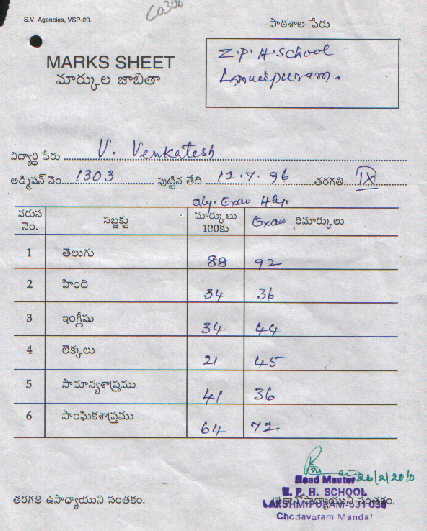 S.V. Agencies, VSP-03.
పాఠశాల పేరు
MARKS SHEET
మార్కుల జాబితా
Z.P.H.School
విద్యార్థి పేరు V. Venkatesh
అడ్మిషన్ నెం. 1303 పుట్టిన తేది 12.7.96 తరగతి IX
వరుస నెం. సబ్జక్టు మార్కులు 100కు Exam రిమార్కులు
1 తెలుగు 88 92
2 హింది 34 36
3 ఇంగ్లీషు 34 44
4 లెక్కలు 21 45
5 సామాన్యశాస్త్రము 41 36
6 సాంఘికశాస్త్రము 64 72
Head Master
Z. P. H. SCHOOL
తరగతి ఉపాధ్యాయుని సంతకం.
LAKSHMIPURAM-531 036
Chodavaram Mandal